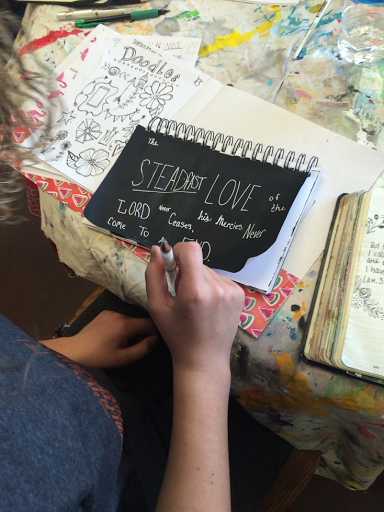 Doodles
The
STEADFAST LOVE
of the
LORD Never Ceases, his Mercies Never
COME TO END
But
I ca
and
I ha